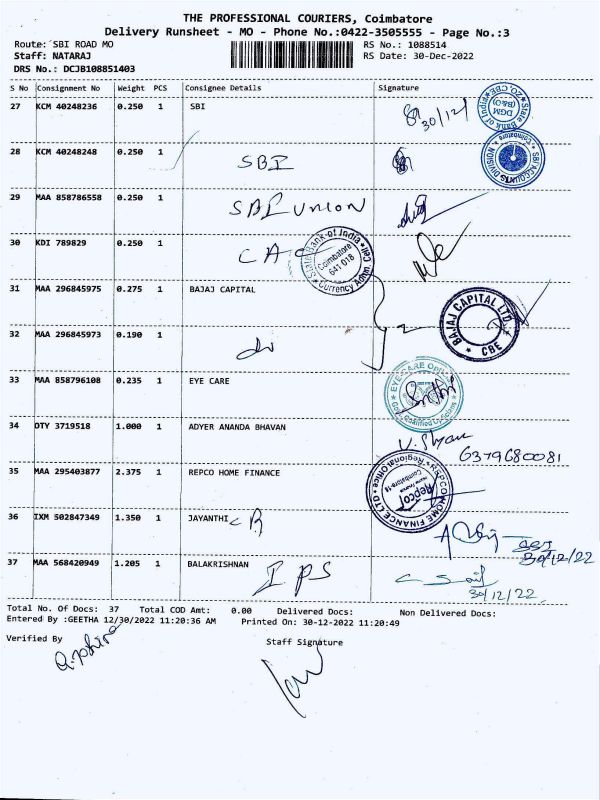 THE PROFESSIONAL COURIERS, Coimbatore
Delivery Runsheet - MO - Phone No.:0422-3505555 - Page No.:3
Route: SBI ROAD MO RS No.: 1088514
Staff: NATARAJ RS Date: 30-Dec-2022
DRS No.: DCJB108851403
S No Consignment No Weight PCS Consignee Details Signature
27 KCM 40248236 0.250 1 SBI 30/12/
28 KCM 40248248 0.250 1 SBI
29 MAA 858786558 0.250 1 SBI UNION
30 KDI 789829 0.250 1 CAC
State Bank of India Coimbatore 641 018
31 MAA 296845975 0.275 1 BAJAJ CAPITAL
BAJAJ CAPITAL LTD CBE
32 MAA 296845973 0.190 1 do
33 MAA 858796108 0.235 1 EYE CARE
34 OTY 3719518 1.000 1 ADYER ANANDA BHAVAN
6379680081
35 MAA 295403877 2.375 1 REPCO HOME FINANCE
REPCO HOME FINANCE LTD Regional Office
36 IXM 502847349 1.350 1 JAYANTHI CR
SBI
30/12/22
37 MAA 568420949 1.205 1 BALAKRISHNAN IPS
30/12/22
Total No. Of Docs: 37 Total COD Amt: 0.00 Delivered Docs: Non Delivered Docs:
Entered By :GEETHA 12/30/2022 11:20:36 AM Printed On: 30-12-2022 11:20:49
Verified By Staff Signature